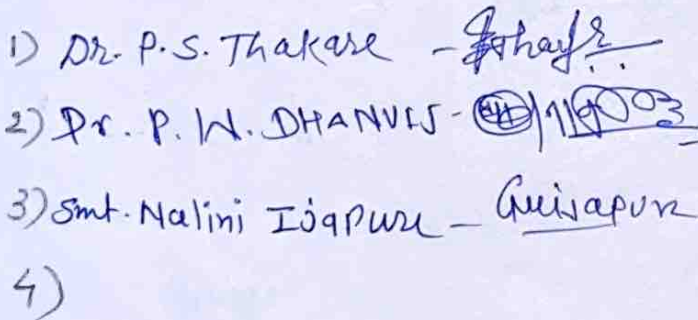 1) Dr. P.S. Thakare -
2) Dr. P. W. DHANVIJ -
3) Smt. Nalini Ijapure -
4)